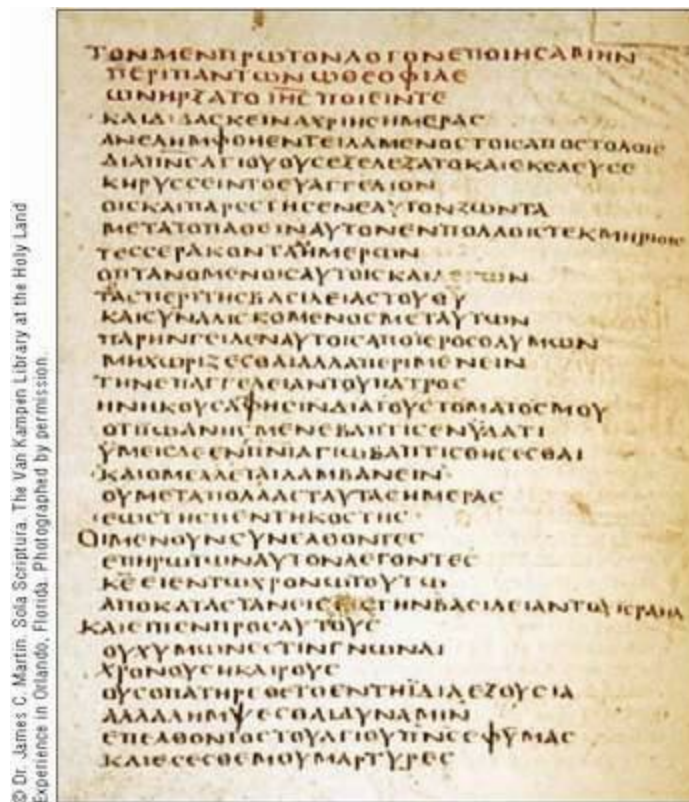 © Dr. James C. Martin. Sola Scriptura. The Van Kampen Library at the Holy Land
Experience in Orlando, Florida. Photographed by permission.
ΤΟΝΜΕΝΠΡΩΤΟΝΛΟΓΟΝΕΠΟΙΗϹΑΜΗΝ
ΠΕΡΙΠΑΝΤΩΝΩΘΕΟΦΙΛΕ
ΩΝΗΡΞΑΤΟΙΗϹΠΟΙΕΙΝΤΕ
ΚΑΙΔΙΔΑϹΚΕΙΝΑΧΡΙΗϹΗΜΕΡΑϹ
ΑΝΕΛΗΜΦΘΗΕΝΤΕΙΛΑΜΕΝΟϹΤΟΙϹΑΠΟϹΤΟΛΟΙϹ
ΔΙΑΠΝϹΑΓΙΟΥΟΥϹΕΞΕΛΕΞΑΤΟΚΑΙΕΚΕΛΕΥϹΕ
ΚΗΡΥϹϹΕΙΝΤΟΕΥΑΓΓΕΛΙΟΝ
ΟΙϹΚΑΙΠΑΡΕϹΤΗϹΕΝΕΑΥΤΟΝΖΩΝΤΑ
ΜΕΤΑΤΟΠΑΘΕΙΝΑΥΤΟΝΕΝΠΟΛΛΟΙϹΤΕΚΜΗΡΙΟΙϹ
ΤΕϹϹΕΡΑΚΟΝΤΑΗΜΕΡΩΝ
ΟΠΤΑΝΟΜΕΝΟΙϹΑΥΤΟΙϹΚΑΙΛΕΓΩΝ
ΤΑϹΠΕΡΙΤΗϹΒΑϹΙΛΕΙΑϹΤΟΥΘΥ
ΚΑΙϹΥΝΑΛΙϹΚΟΜΕΝΟϹΜΕΤΑΥΤΩΝ
ΠΑΡΗΝΓΕΙΛΕΝΑΥΤΟΙϹΑΠΟΪΕΡΟϹΟΛΥΜΩΝ
ΜΗΧΩΡΙΖΕϹΘΑΙΑΛΛΑΠΕΡΙΜΕΝΕΙΝ
ΤΗΝΕΠΑΓΓΕΛΕΙΑΝΤΟΥΠΑΤΡΟϹ
ΗΝΗΚΟΥϹΑΦΗϹΙΝΔΙΑΤΟΥϹΤΟΜΑΤΟϹΜΟΥ
ΟΤΙΪΩΑΝΗϹΜΕΝΕΒΑΠΤΙϹΕΝΥΔΑΤΙ
ΫΜΕΙϹΔΕΕΝΠΝΙΑΓΙΩΒΑΠΤΙϹΘΗϹΕϹΘΑΙ
ΚΑΙΟΜΕΛΛΕΤΑΙΛΑΜΒΑΝΕΙΝ
ΟΥΜΕΤΑΠΟΛΛΑϹΤΑΥΤΑϹΗΜΕΡΑϹ
ΕΩϹΤΗϹΠΕΝΤΗΚΟϹΤΗϹ
ΟΙΜΕΝΟΥΝϹΥΝΕΛΘΟΝΤΕϹ
ΕΠΗΡΩΤΩΝΑΥΤΟΝΛΕΓΟΝΤΕϹ
ΚΕΕΙΕΝΤΩΧΡΟΝΩΤΟΥΤΩ
ΑΠΟΚΑΤΑϹΤΑΝΕΙϹΕΙϹΤΗΝΒΑϹΙΛΕΙΑΝΤΟΥΙϹΡΑΗΛ
ΚΑΙΕΙΠΕΝΠΡΟϹΑΥΤΟΥϹ
ΟΥΧΥΜΩΝΕϹΤΙΝΓΝΩΝΑΙ
ΧΡΟΝΟΥϹΗΚΑΙΡΟΥϹ
ΟΥϹΟΠΑΤΗΡΕΘΕΤΟΕΝΤΗΪΔΙΑΕΞΟΥϹΙΑ
ΑΛΛΑΛΗΜΨΕϹΘΑΙΔΥΝΑΜΙΝ
ΕΠΕΛΘΟΝΤΟϹΤΟΥΑΓΙΟΥΠΝϹΕΦΥΜΑϹ
ΚΑΙΕϹΕϹΘΕΜΟΥΜΑΡΤΥΡΕϹ